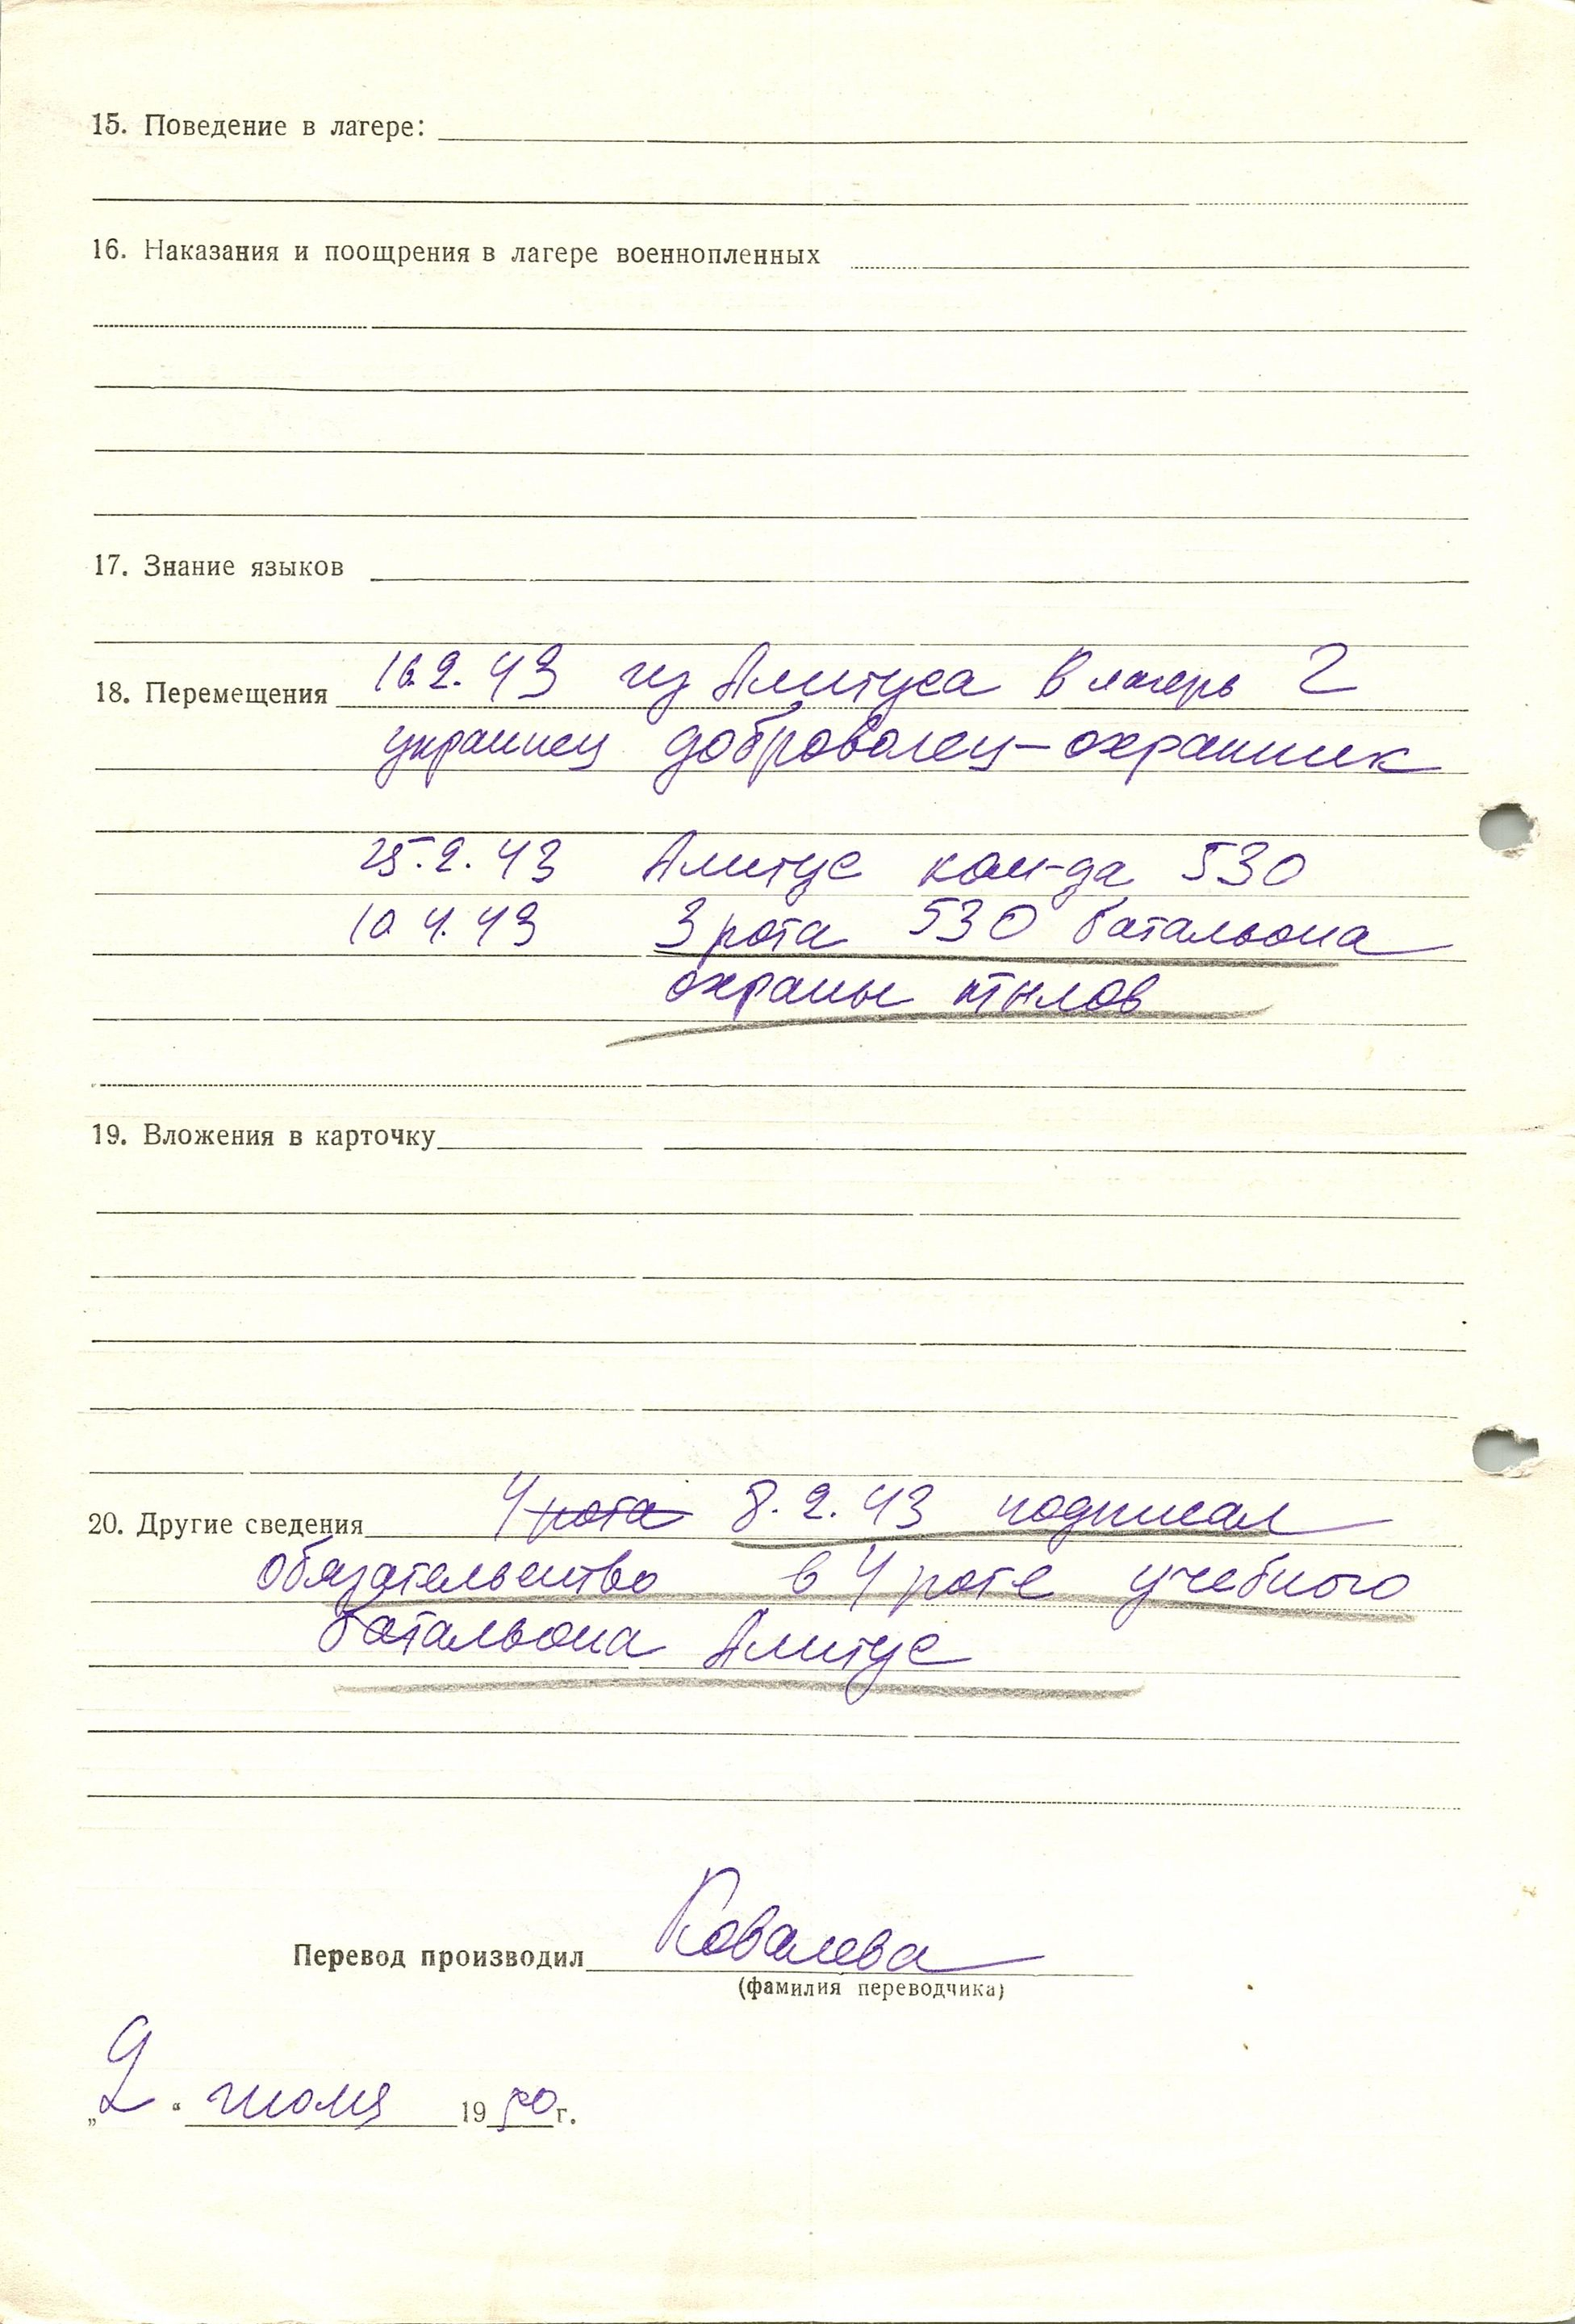 15. Поведение в лагере:
16. Наказания и поощрения в лагере военнопленных
17. Знание языков
18. Перемещения 16.2.43 из Алитуса в лагерь 2
украинец доброволец-охранник
25.2.43 Алитус ком-да 530
10.4.43 3 рота 530 батальона
охраны тылов
19. Вложения в карточку
20. Другие сведения 4 рота 8.2.43 подписал
обязательство в 4 роте учебного
батальона Алитус
Перевод производил Ковалева
(фамилия переводчика)
„2“ июля 1950г.